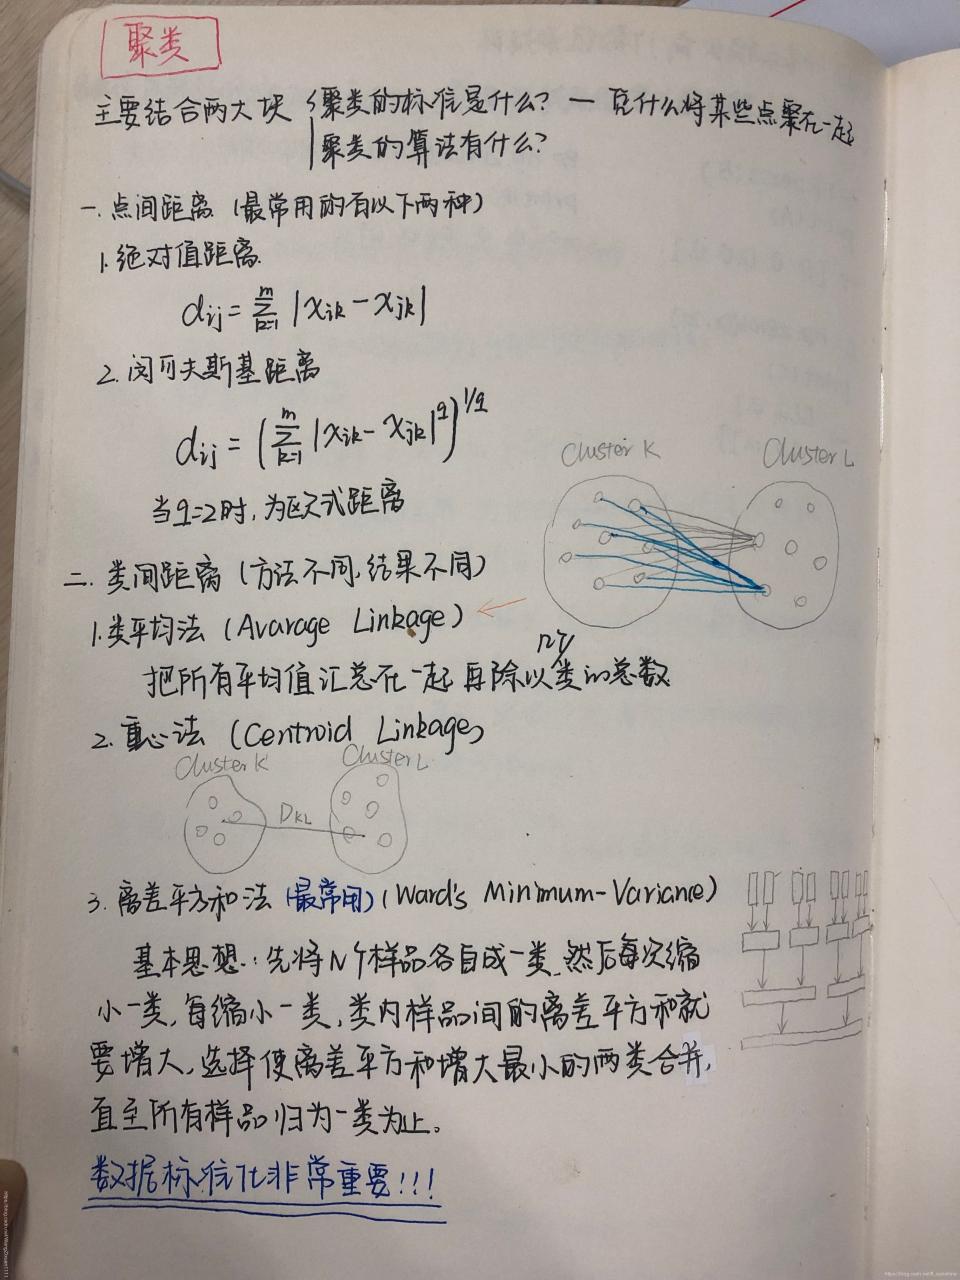 聚类
主要结合两大块 聚类的标准是什么? — 凭什么将某些点聚在一起
聚类的算法有什么?
一. 点间距离 (最常用的有以下两种)
1. 绝对值距离
dij = m∑k=1 |xik - xjk|
2. 闵可夫斯基距离
dij = (m∑k=1 |xik - xjk|^q)^1/q
当q=2时, 为欧式距离
Cluster K Cluster L
二. 类间距离 (方法不同, 结果不同)
1. 类平均法 (Avarage Linkage)
把所有平均值汇总在一起再除以类的总数
2. 重心法 (Centroid Linkage)
Cluster K Cluster L
DKL
3. 离差平方和法 (最常用) (Ward's Minimum-Variance)
基本思想: 先将N个样品各自成一类, 然后每次缩
小一类, 每缩小一类, 类内样品间的离差平方和就
要增大, 选择使离差平方和增大最小的两类合并,
直至所有样品归为一类为止。
数据标准化非常重要!!!